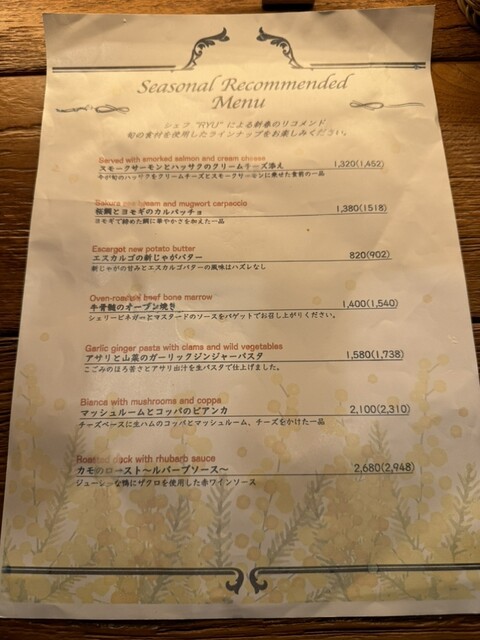 Seasonal Recommended
Menu
シェフ "RYU" による新春のリコメンド
旬の食材を使用したラインナップをお楽しみください。
Served with smorked salmon and cream cheese
スモークサーモンとハッサクのクリームチーズ添え 1,320(1,452)
今が旬のハッサクをクリームチーズとスモークサーモンに乗せた食前の一品
Sakura sea bream and mugwort carpaccio
桜鯛とヨモギのカルパッチョ 1,380(1518)
ヨモギで締めた鯛に華やかさを加えた一品
Escargot new potato butter
エスカルゴの新じゃがバター 820(902)
新じゃがの甘みとエスカルゴバターの風味はハズレなし
Oven-roasted beef bone marrow
牛骨髄のオーブン焼き 1,400(1,540)
シェリービネガーとマスタードのソースをバゲットでお召し上がりください。
Garlic ginger pasta with clams and wild vegetables
アサリと山菜のガーリックジンジャーパスタ 1,580(1,738)
こごみのほろ苦さとアサリ出汁を生パスタで仕上げました。
Bianca with mushrooms and coppa
マッシュルームとコッパのビアンカ 2,100(2,310)
チーズベースに生ハムのコッパとマッシュルーム、チーズをかけた一品
Roasted duck with rhubarb sauce
カモのロースト〜ルバーブソース〜 2,680(2,948)
ジューシーな鴨にザクロを使用した赤ワインソース